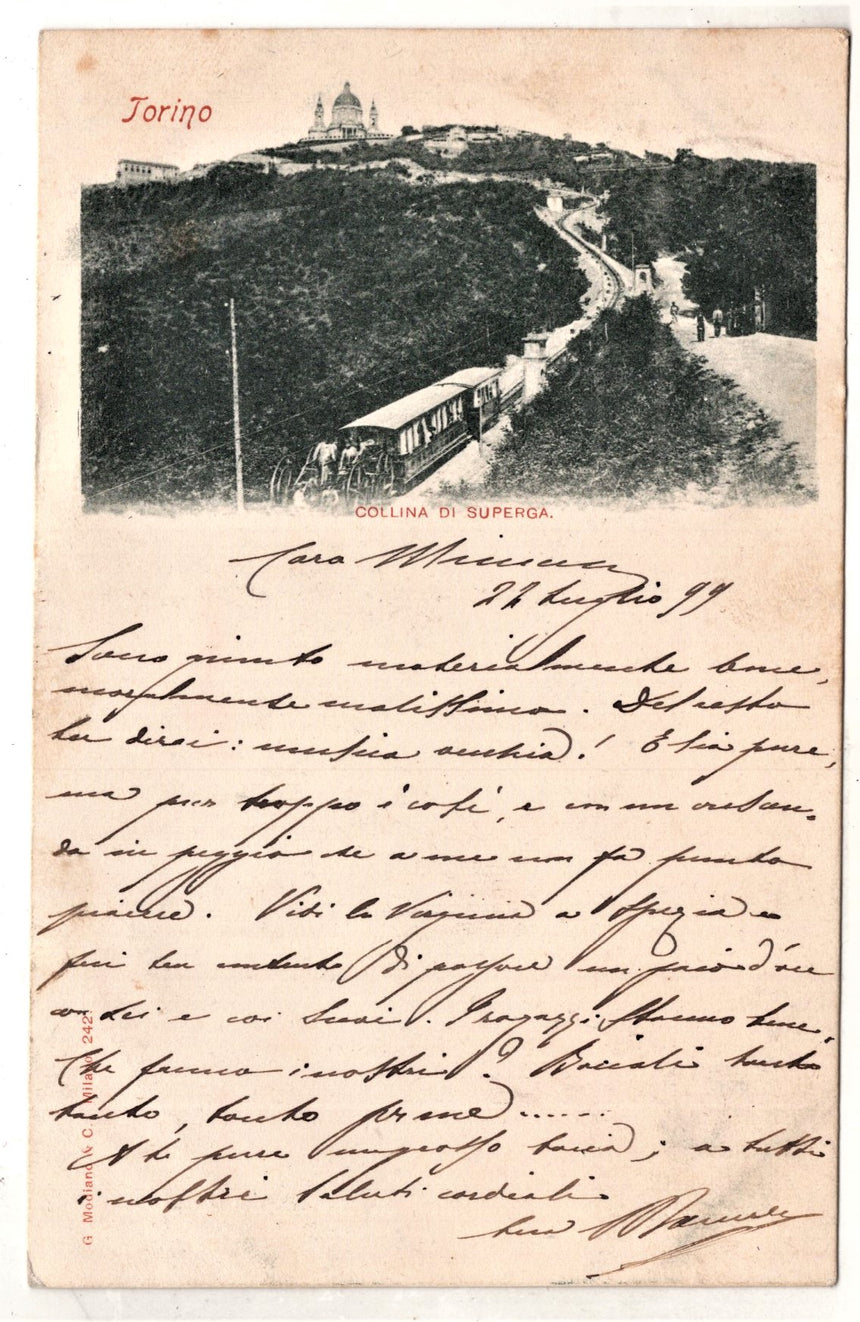 Torino
COLLINA DI SUPERGA.
Cara
22 Luglio 99
Sono giunto materialmente bene,
moralmente malissimo. Del resto
tu dirai: musica vecchia! E sia pure,
ma pur troppo è così, e con un crescen-
do in peggio che a me non fa punto
piacere. Vidi la Virginia a Spezia e
fui ben contento di passare un paio d'ore
con Lei e coi Suoi. I ragazzi stanno bene.
Che fanno i nostri? Baciali tanto
tanto, tanto per me......
A te pure un grosso bacio; a tutti
i nostri saluti cordiali
tuo
G Modiano & C. Milano 242.